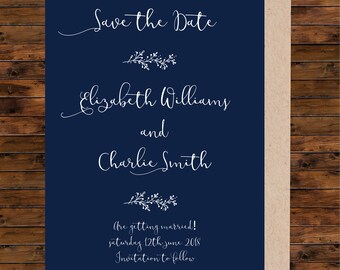 Save the Date
Elizabeth Williams
and
Charlie Smith
Are getting married!
saturday 12th june 2018
Invitation to follow